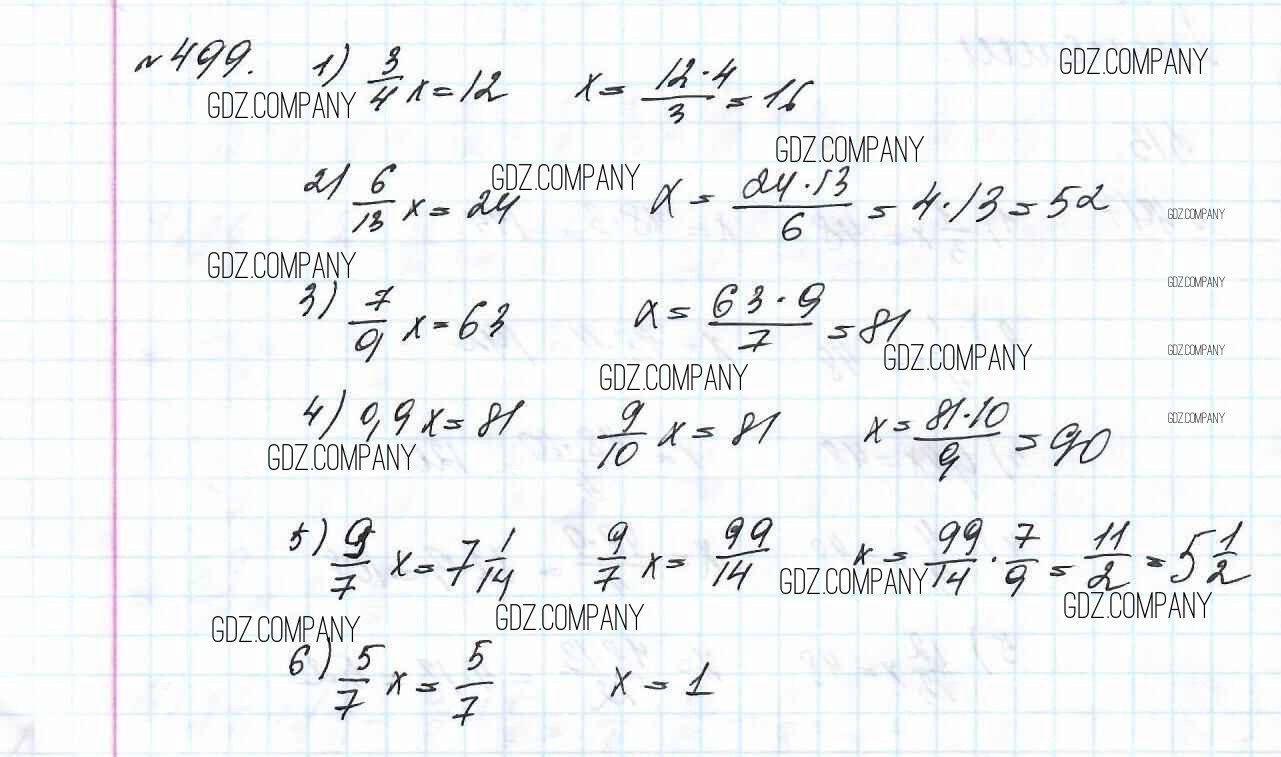 №499. 1) 3/4 x = 12 x = 12·4/3 = 16 GDZ.COMPANY
GDZ.COMPANY
GDZ.COMPANY
2) 6/13 x = 24 GDZ.COMPANY x = 24·13/6 = 4·13 = 52 GDZ.COMPANY
GDZ.COMPANY
GDZ.COMPANY
3) 7/9 x = 63 x = 63·9/7 = 81
GDZ.COMPANY GDZ.COMPANY
GDZ.COMPANY
4) 0,9 x = 81 9/10 x = 81 x = 81·10/9 = 90 GDZ.COMPANY
GDZ.COMPANY
5) 9/7 x = 7 1/14 9/7 x = 99/14 x = 99/14 · 7/9 = 11/2 = 5 1/2
GDZ.COMPANY GDZ.COMPANY
GDZ.COMPANY GDZ.COMPANY
6) 5/7 x = 5/7 x = 1